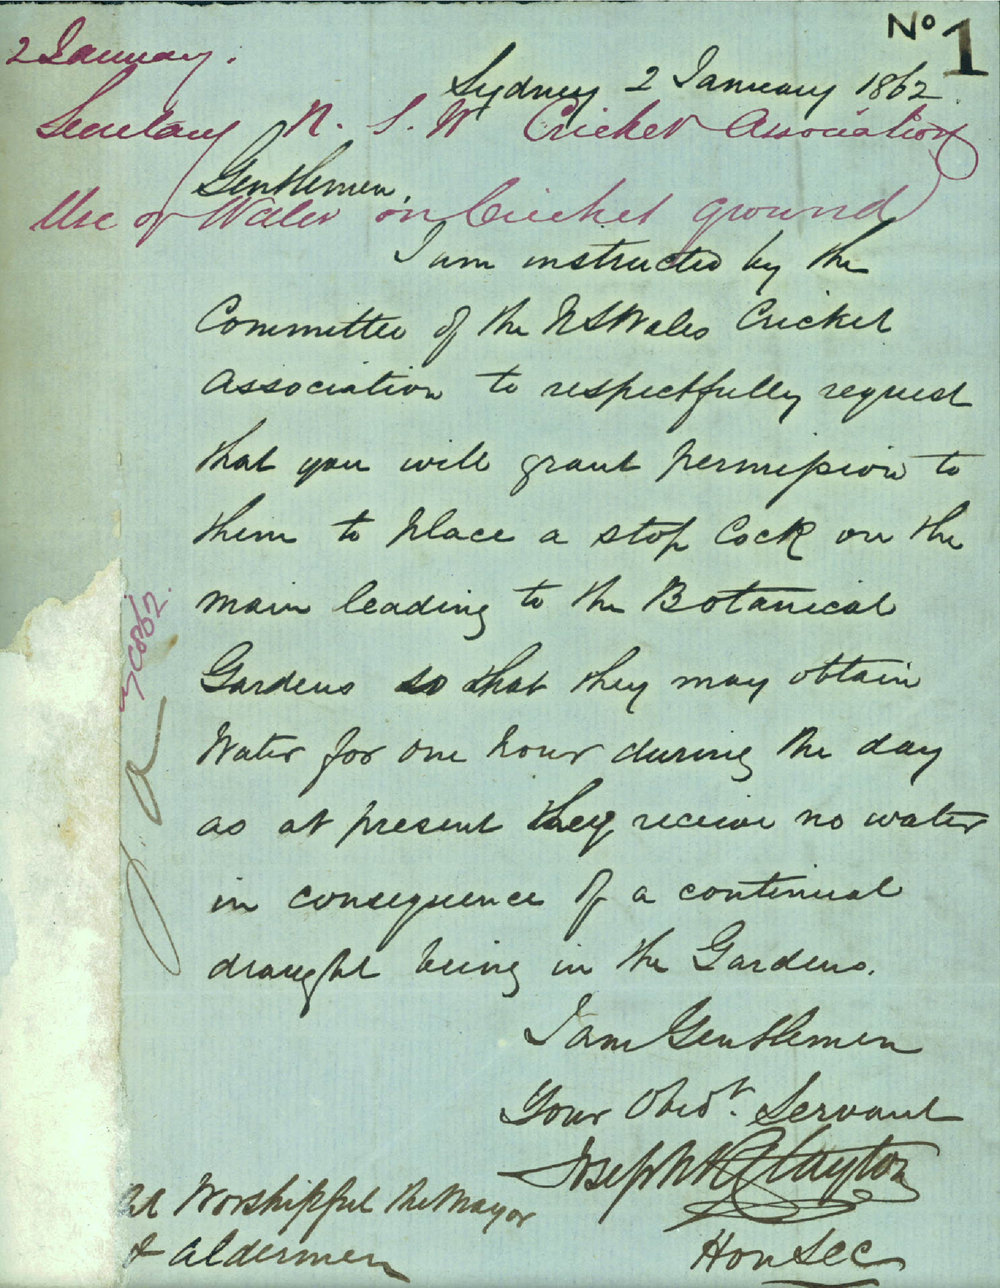 No 1
2 January.
Sydney 2 January 1862
Secretary N. S. W Cricket Association
Gentlemen,
Use of Water on Cricket ground
I am instructed by the
Committee of the N S Wales Cricket
Association to respectfully request
that you will grant permission to
them to place a stop Cock on the
main leading to the Botanical
Gardens so that they may obtain
Water for one hour during the day
as at present they receive no water
in consequence of a continual
draught being in the Gardens.
I am Gentlemen
Your Obedt. Servant
Joseph Clayton
Hon Sec
Worshipful the Mayor
& Aldermen